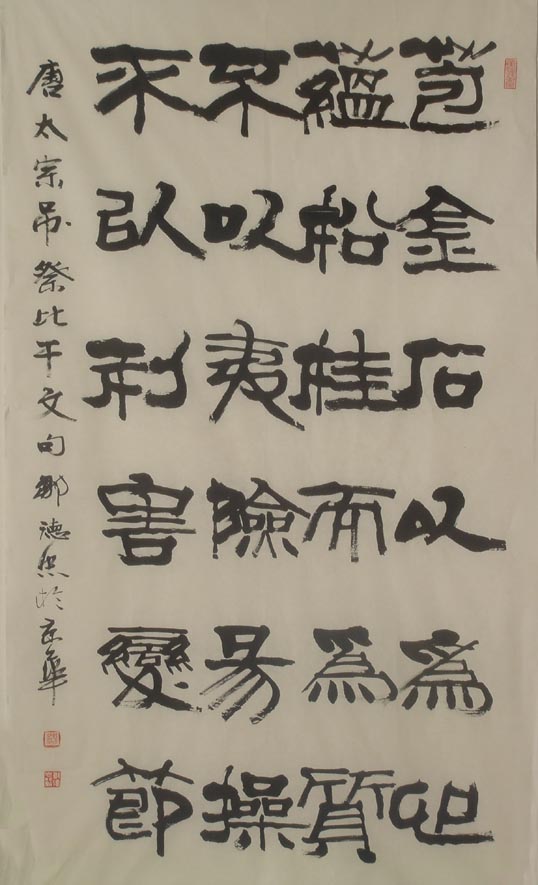 苞金石以為心
蘊松桂而為質
不以夷險易操
不以利害變節
唐太宗吊祭比干文句鄒德忠於京華